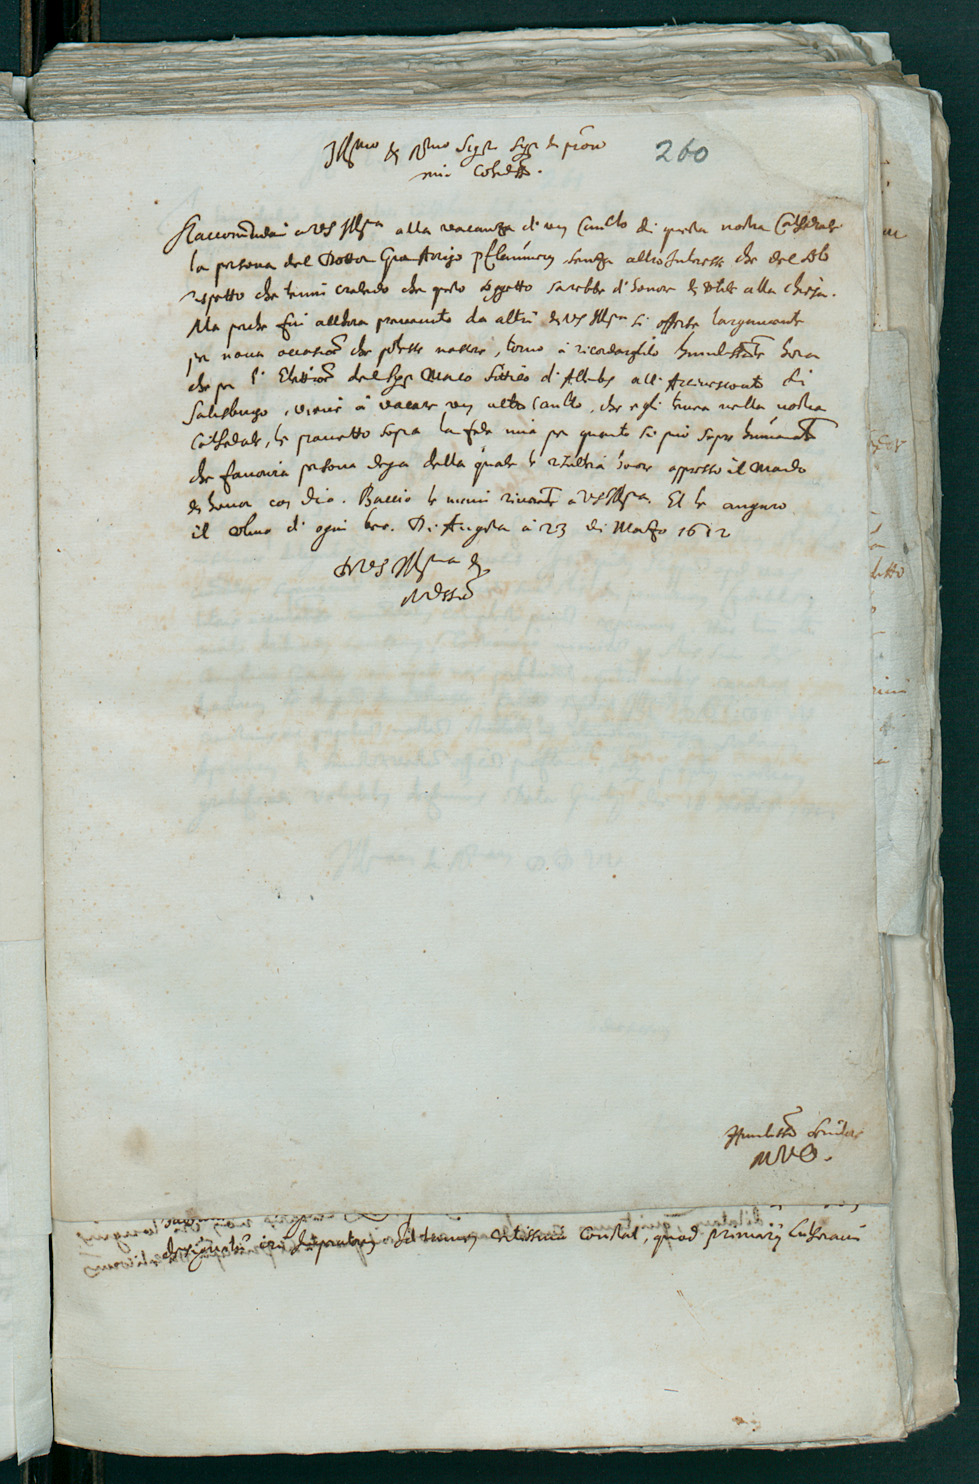 Ill.mo et R.mo Sig.r Sig.r et pron
mio Col.mo
260
Raccomandai a VS Ill.ma alla vacanza di un Can.to di questa nostra Cathedrale
la persona del Dottor Gio: Arrigo senza altro Interesse che del solo
rispetto che tenni credendo che questo soggetto sarebbe d'honore et utile alla chiesa.
Ma perche fui allhora prevenuto da altri et VS Ill.ma si offerse largamente
per nova occasione che potesse nascere, torno à ricordarglilo humilissimam.te hora
che per l'Elettione del Sig.r Marco Sittico d'Altembs all'Arcivescovato di
Salisburgo, viene à vacare un altro Can.to, che egli teneva nella nostra
Cathedrale, le prometto sopra la fede mia per quanto si può saper humanam.te
che favorirà persona degna della quale le risulterà honore appresso il Mondo
et honor con Dio. Baccio le mani riverentem.te a VS Ill.ma Et le auguro
il colmo di ogni bene. Di Augusta à 23 di Marzo 1612
Di VS Ill.ma et
R.ma
Humiliss.o Ser.re
MVO.
constat, quod primarij Lutherani